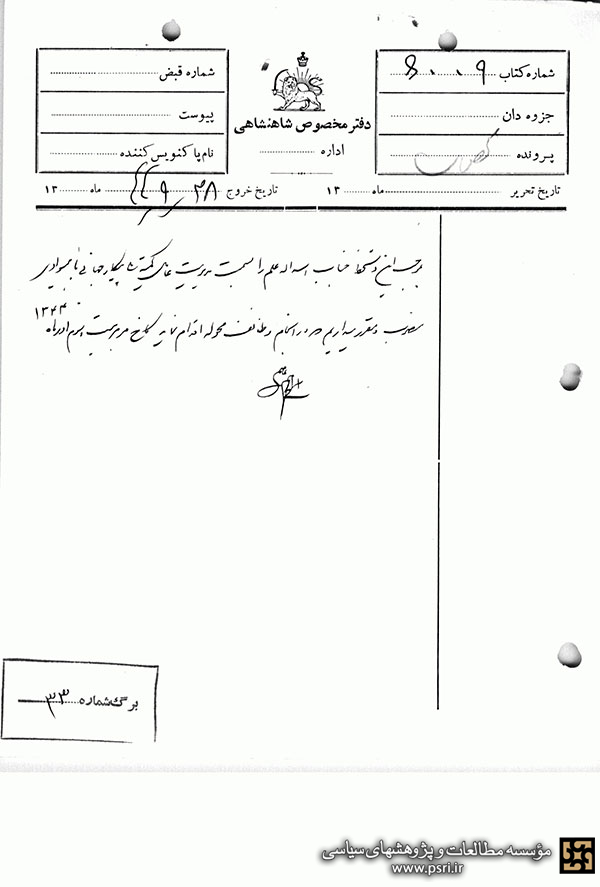 شماره کتاب ۶۰۰۹
جزوه دان
پرونده
دفتر مخصوص شاهنشاهی
اداره
شماره قبض
پیوست
نام پاکنویس کننده
تاریخ تحریر ماه ۱۳
تاریخ خروج ۲۸ ۹ ماه ۱۳۴۴
بموجب این دستخط جناب اسداله علم را بسمت مدیریت عامل کمیته پیکار جهانی با بیسوادی
منصوب و مقرر میداریم در انجام وظائف محوله اقدام نماید کاخ مرمر بیست و سوم آذرماه ۱۳۴۴
برگ شماره ۳۳
مؤسسه مطالعات و پژوهشهای سیاسی
www.psri.ir